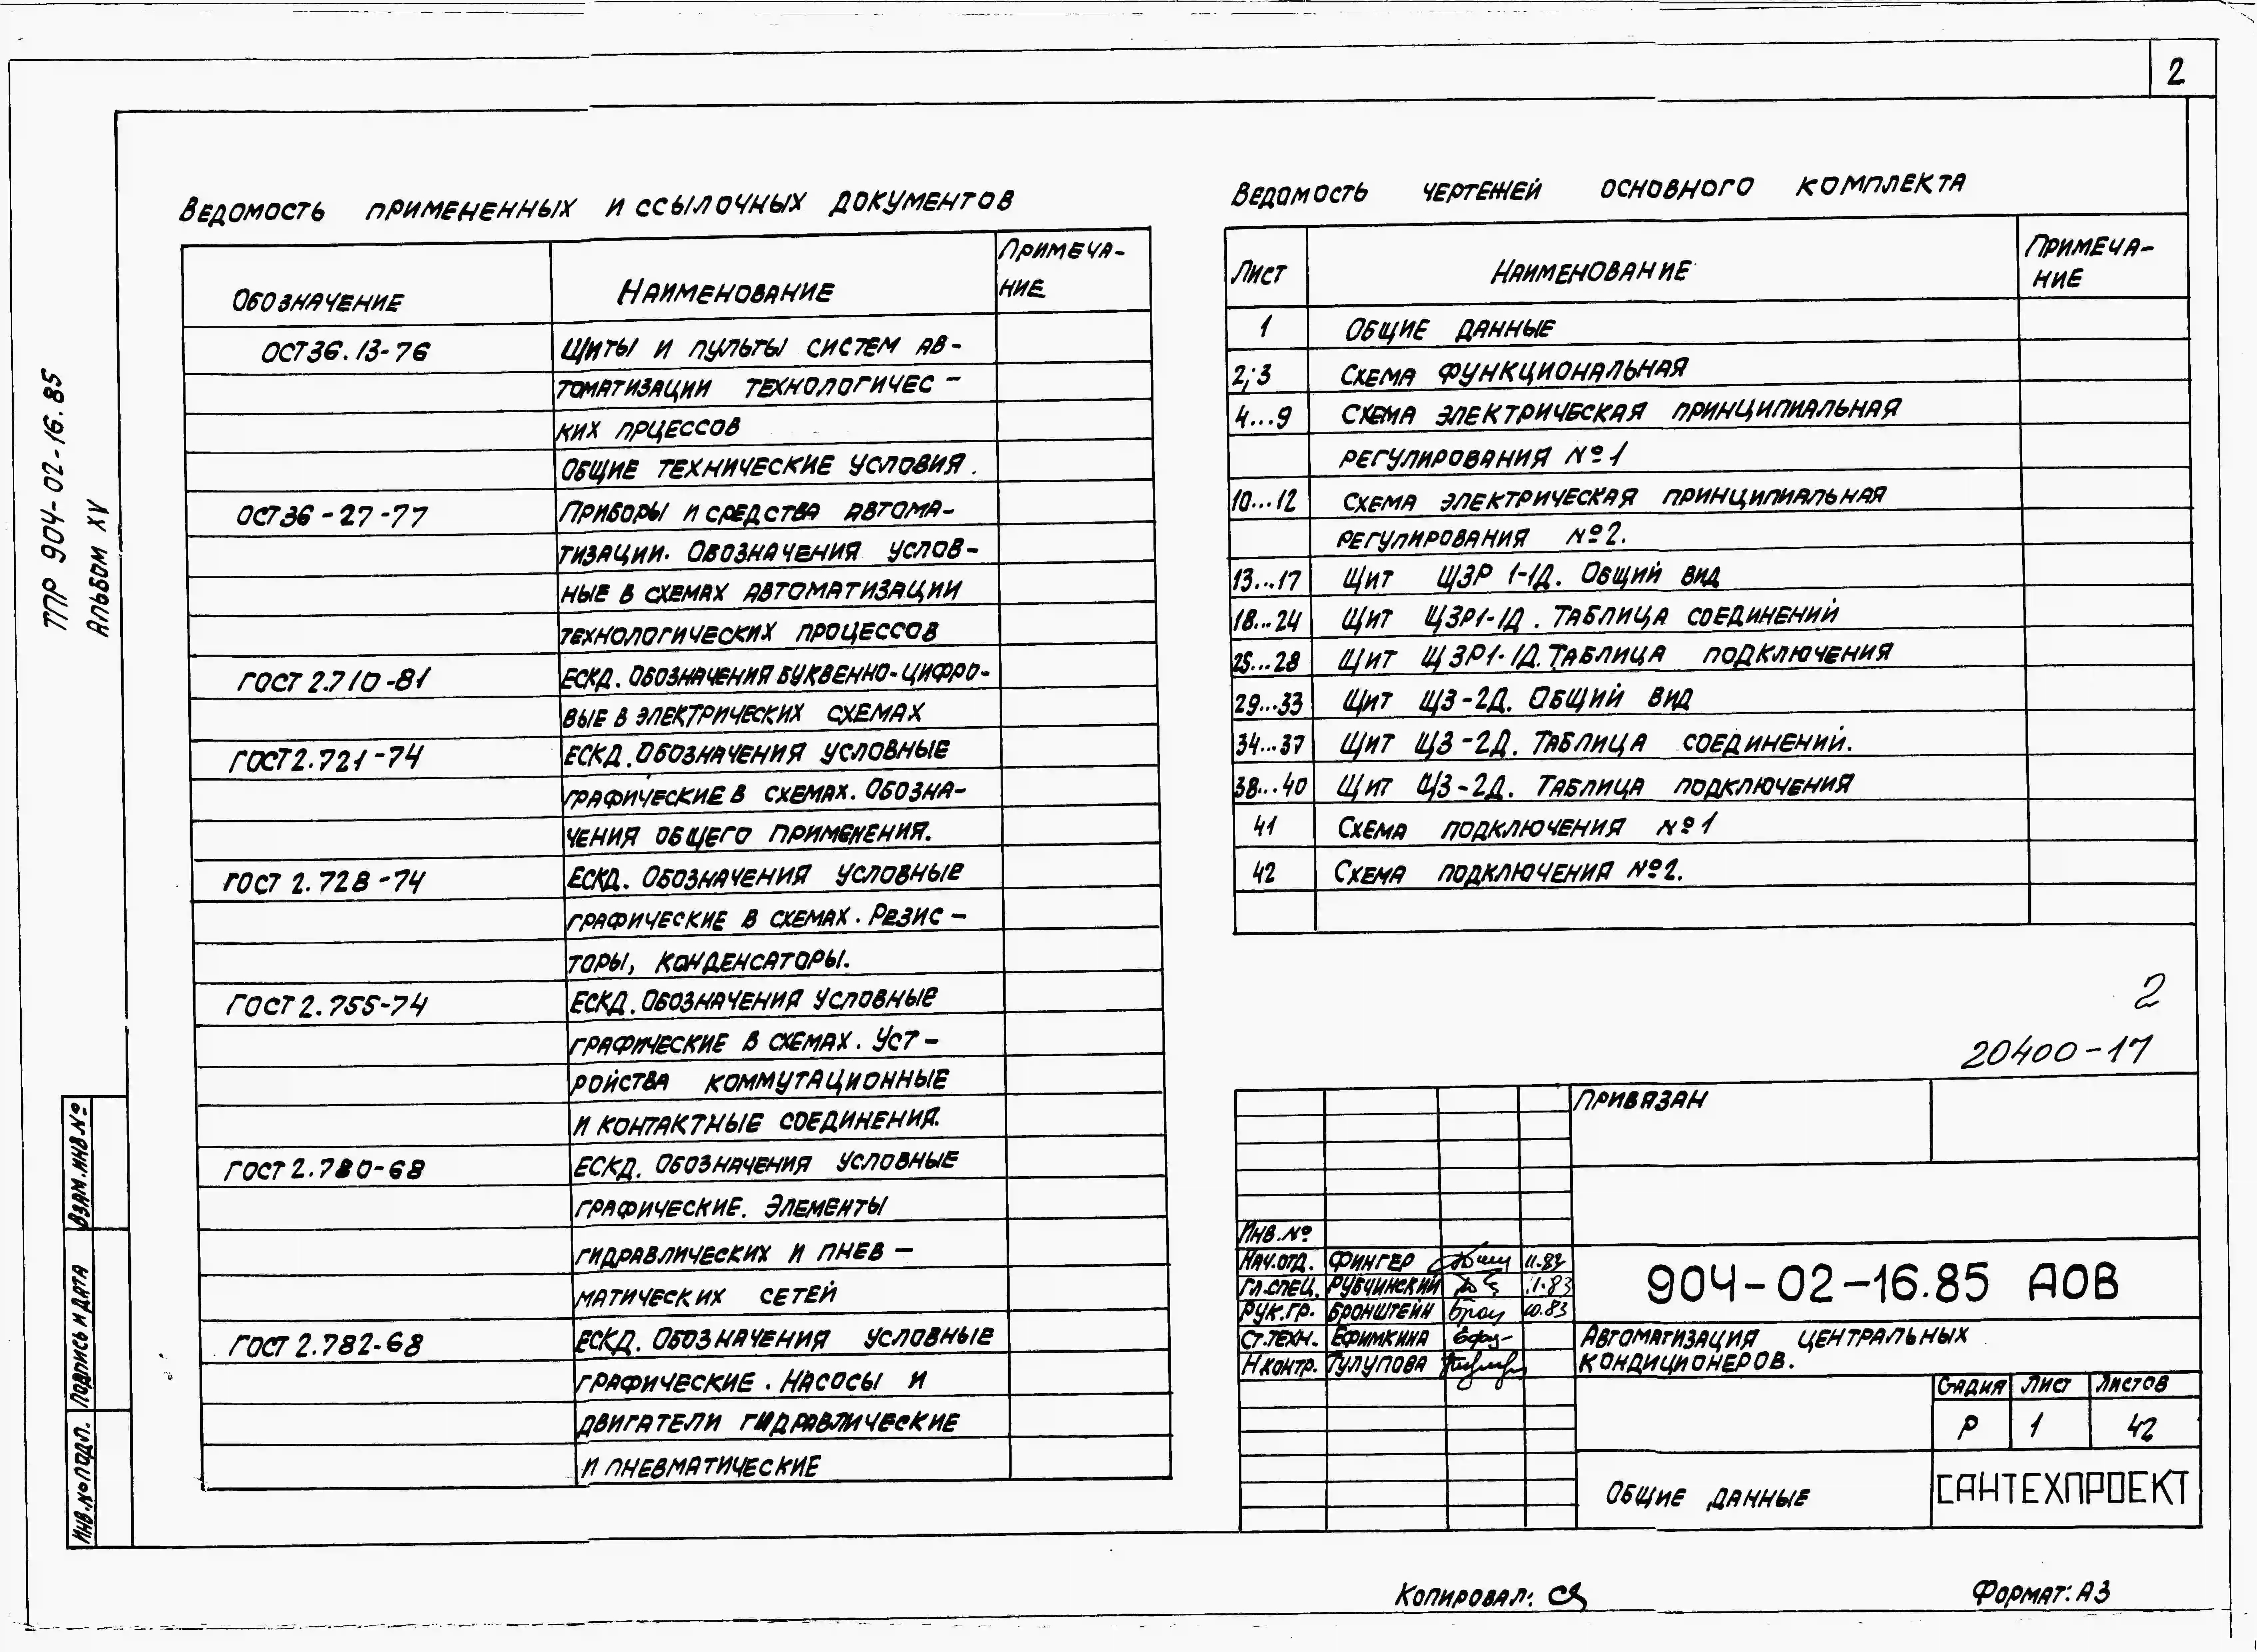 2
ТПР 904-02-16.85
Альбом XV
Ведомость примененных и ссылочных документов
Обозначение
Наименование
Примеча-
ние
ОСТ36.13-76
Щиты и пульты систем ав-
томатизации технологичес-
ких прцессов
Общие технические условия.
ОСТ36-27-77
Приборы и средства автома-
тизации. Обозначения услов-
ные в схемах автоматизации
технологических процессов
ГОСТ 2.710-81
ЕСКД. Обозначения буквенно-цифро-
вые в электрических схемах
ГОСТ 2.721-74
ЕСКД. Обозначения условные
графические в схемах. Обозна-
чения общего применения.
ГОСТ 2.728-74
ЕСКД. Обозначения условные
графические в схемах. Резис-
торы, конденсаторы.
ГОСТ 2.755-74
ЕСКД. Обозначения условные
графические в схемах. Уст-
ройства коммутационные
и контактные соединения.
ГОСТ 2.780-68
ЕСКД. Обозначения условные
графические. Элементы
гидравлических и пнев-
матических сетей
ГОСТ 2.782-68
ЕСКД. Обозначения условные
графические. Насосы и
двигатели гидравлические
и пневматические
Ведомость чертежей основного комплекта
Лист
Наименование
Примеча-
ние
1 Общие данные
2;3 Схема функциональная
4...9 Схема электрическая принципиальная
регулирования №1
10...12 Схема электрическая принципиальная
регулирования №2.
13...17 Щит ЩЗР 1-1Д. Общий вид
18...24 Щит ЩЗР1-1Д. Таблица соединений
25...28 Щит ЩЗР1-1Д. Таблица подключения
29...33 Щит ЩЗ-2Д. Общий вид
34...37 Щит ЩЗ-2Д. Таблица соединений.
38...40 Щит ЩЗ-2Д. Таблица подключения
41 Схема подключения №1
42 Схема подключения №2.
2
20400-17
Привязан
Инв.№
Нач.отд. Фингер 11.84
Гл.спец. Рубчинский 11.83
Рук.гр. Бронштейн 10.83
Ст.техн. Ефимкина
Н.контр. Тулупова
904-02-16.85 АОВ
Автоматизация центральных
кондиционеров.
Стадия Лист Листов
Р 1 42
Общие данные
САНТЕХПРОЕКТ
Взам.инв.№
Подпись и дата
Инв.№подл.
Копировал:
Формат: А3